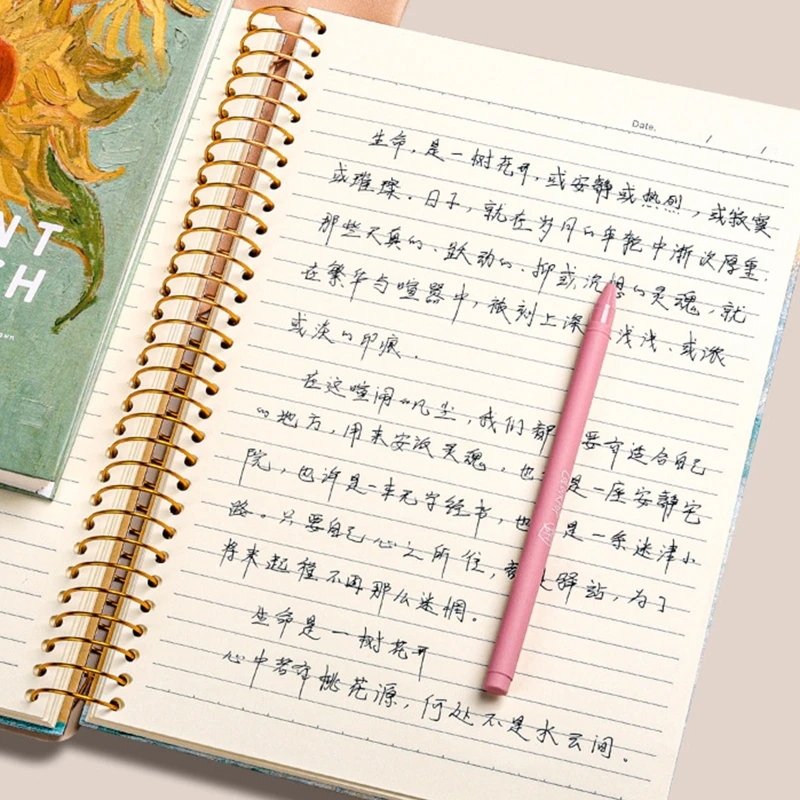 NT
CH
Date. / /
生命，是一树花开，或安静或热烈，或寂寞
或璀璨。日子，就在岁月的年轮中渐次厚重，
那些天真的、跃动的、抑或沉思的灵魂，就
在繁华与喧嚣中，被刻上深 浅浅、或浓
或淡的印痕。
在这喧闹的凡尘，我们都 要有适合自己
的地方，用来安放灵魂，也 是一座安静宅
院，也许是一本无字经书，也 是一条迷津小
路。只要自己心之所往， 驿站，为了
将来起程不再那么迷惘。
生命是一树花开
心中若有桃花源，何处不是水云间。